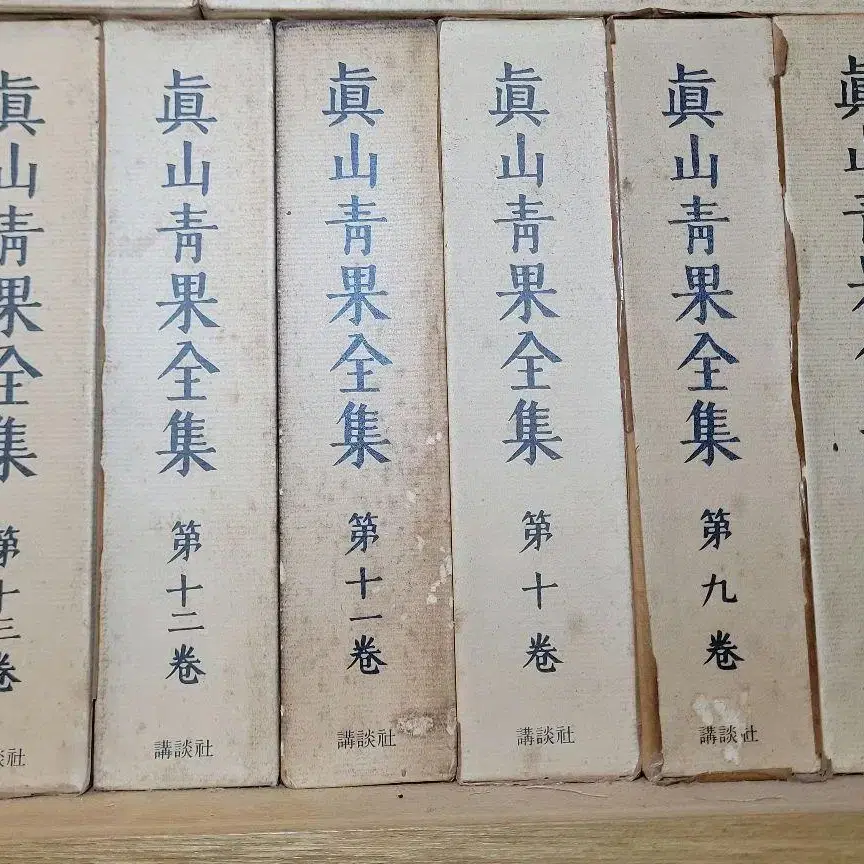 眞山青果全集
第十三巻
談社
眞山青果全集
第十二巻
講談社
眞山青果全集
第十一巻
講談社
眞山青果全集
第十巻
講談社
眞山青果全集
第九巻
講談社
眞山青果全